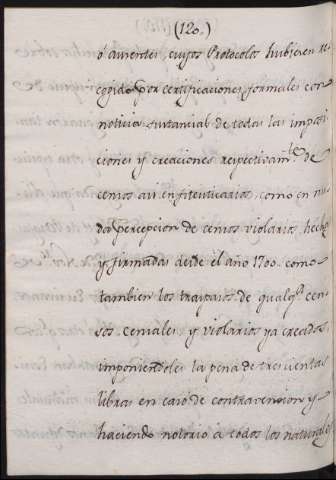 (120.)
ó ausentes, cuyos Protocolos hubiesen re
cogido por certificaciones formales con
noticia sustancial de todas las imposi
ciones y creaciones respectivamte. de
censos asi enfiteuticarios, como en nu
da percepcion de censos violarios, hechas
y firmadas desde el año 1700. como
tambien los traspasos de qualqr. cen
sos censales, y violarios ya creados
imponiendoles la pena de trescientas
libras en caso de contravencion y
haciendo notorio á todos los naturales